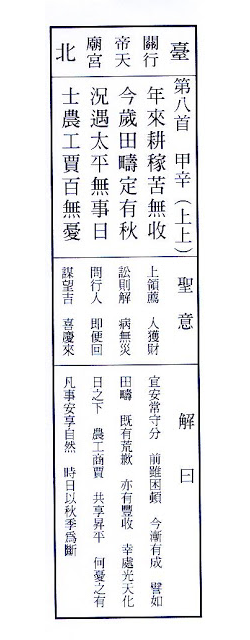 臺北
行天宮
關帝廟
第八首 甲辛(上上)
年來耕稼苦無收
今歲田疇定有秋
況遇太平無事日
士農工賈百無憂
聖意
上領薦 人獲財
訟則解 病無災
問行人 即便回
謀望吉 喜慶來
解曰
宜安常守分 前雖困頓 今漸有成 譬如
田疇 既有荒歉 亦有豐收 幸處光天化
日之下 農工商賈 共享昇平 何憂之有
凡事安享自然 時日以秋季爲斷